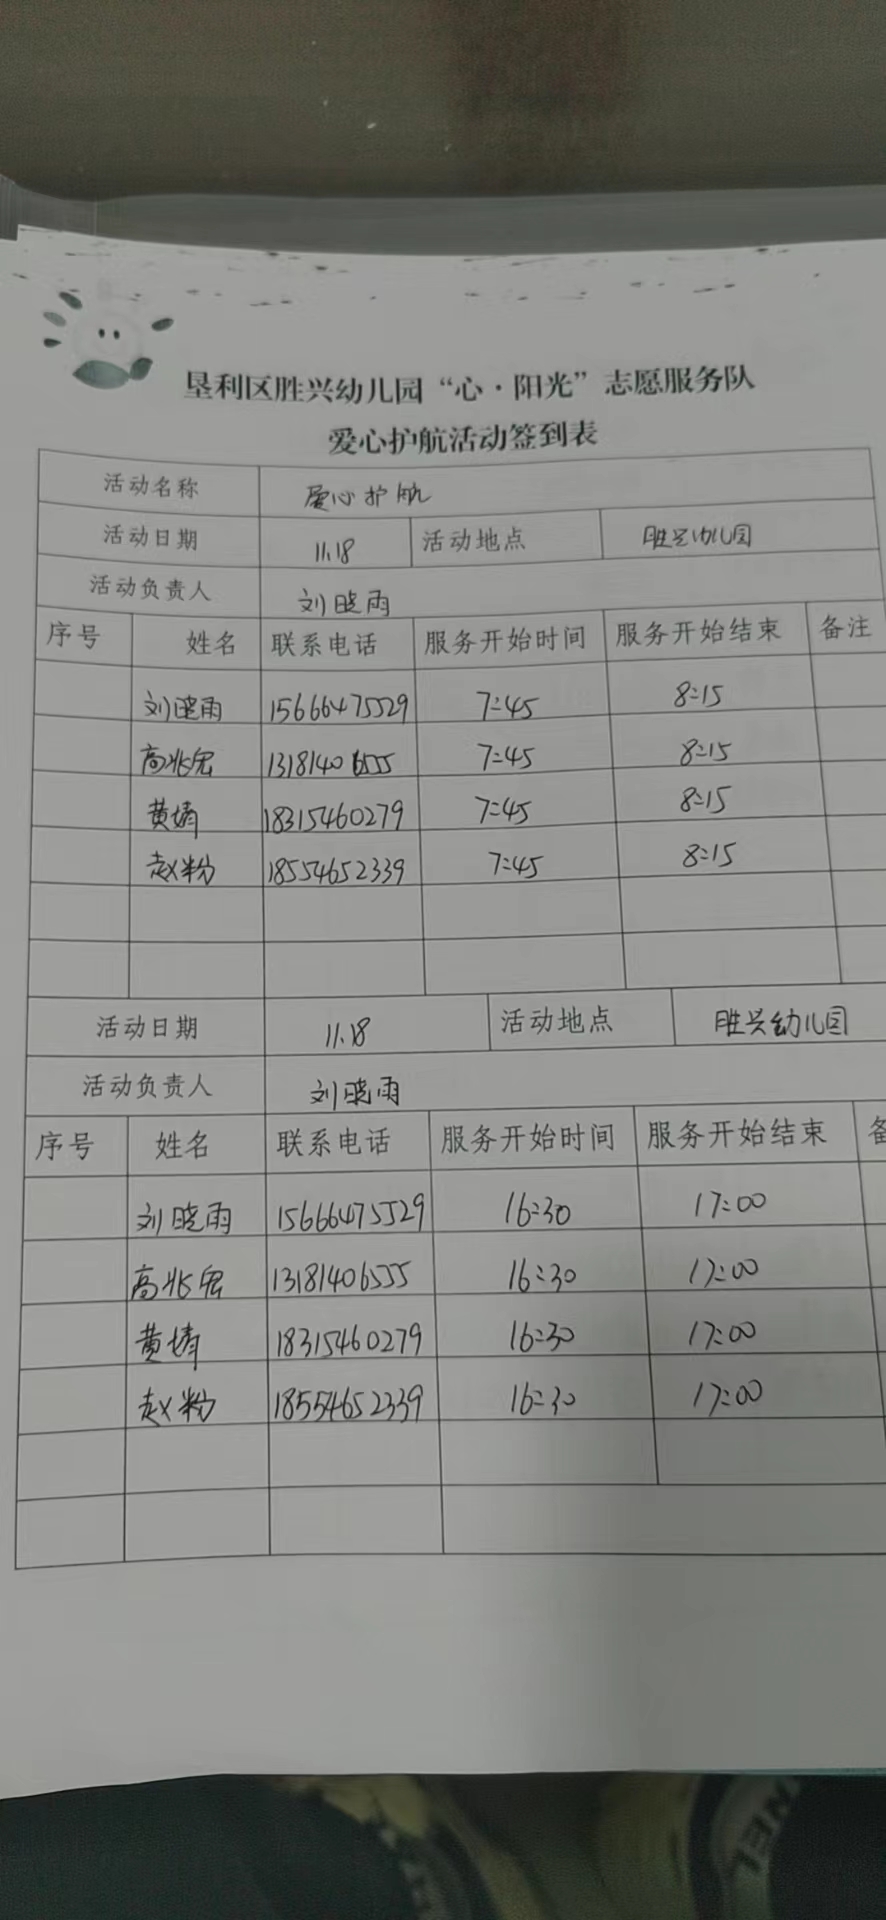 垦利区胜兴幼儿园“心·阳光”志愿服务队
爱心护航活动签到表
活动名称 爱心护航
活动日期 11.18 活动地点 胜兴幼儿园
活动负责人 刘晓雨
序号 姓名 联系电话 服务开始时间 服务开始结束 备注
刘晓雨 15666475529 7:45 8:15
高兆宏 13181406555 7:45 8:15
黄婧 18315460279 7:45 8:15
赵粉 18554652339 7:45 8:15
活动日期 11.18 活动地点 胜兴幼儿园
活动负责人 刘晓雨
序号 姓名 联系电话 服务开始时间 服务开始结束 备
刘晓雨 15666475529 16:30 17:00
高兆宏 13181406555 16:30 17:00
黄婧 18315460279 16:30 17:00
赵粉 18554652339 16:30 17:00